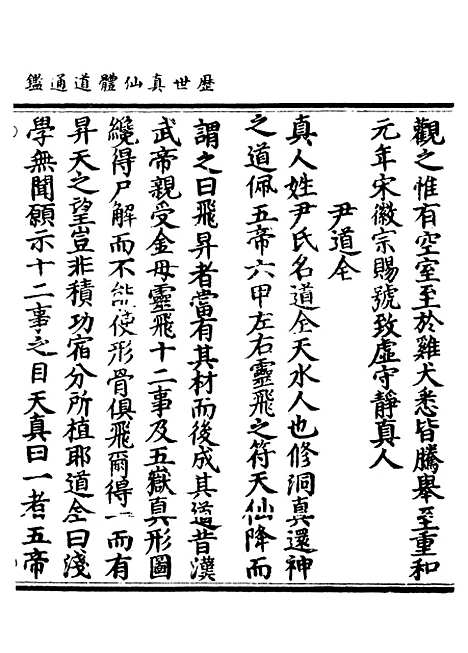 歷世真仙體道通鑑
觀之惟有空室至於雞犬悉皆騰舉至重和
元年宋徽宗賜號致虛守靜真人
尹道全
真人姓尹氏名道全天水人也修洞真還神
之道佩五帝六甲左右靈飛之符天仙降而
謂之曰飛昇者當有其材而後成其道昔漢
武帝親受金母靈飛十二事及五嶽真形圖
纔得尸解而不能使形骨俱飛爾得一而有
昇天之望豈非積功宿分所植耶道全曰淺
學無聞願示十二事之目天真曰一者五帝